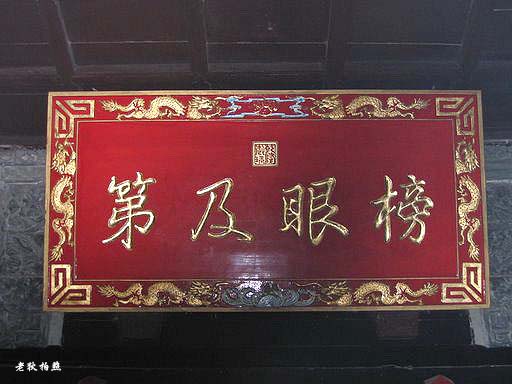 榜眼及第
老狄拍照